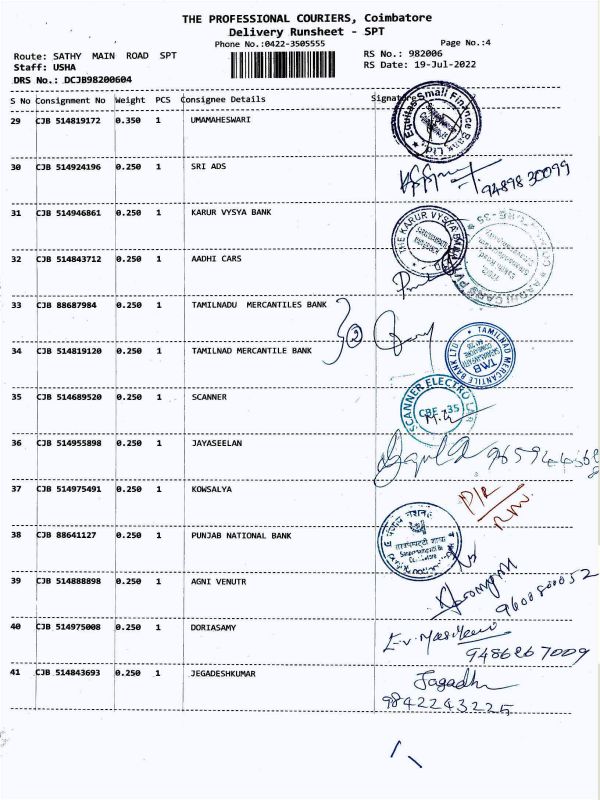 THE PROFESSIONAL COURIERS, Coimbatore
Delivery Runsheet - SPT
Phone No.:0422-3505555 Page No.:4
Route: SATHY MAIN ROAD SPT RS No.: 982006
Staff: USHA RS Date: 19-Jul-2022
DRS No.: DCJB98200604
S No Consignment No Weight PCS Consignee Details Signature
29 CJB 514819172 0.350 1 UMAMAHESWARI
Equitas Small Finance Bank Ltd.
30 CJB 514924196 0.250 1 SRI ADS
94898 30099
31 CJB 514946861 0.250 1 KARUR VYSYA BANK
THE KARUR VYSYA BANK
32 CJB 514843712 0.250 1 AADHI CARS
33 CJB 88687984 0.250 1 TAMILNADU MERCANTILES BANK
2
34 CJB 514819120 0.250 1 TAMILNAD MERCANTILE BANK
TAMILNAD MERCANTILE BANK LTD
TMB
35 CJB 514689520 0.250 1 SCANNER
SCANNER ELECTRO
CBE 35
36 CJB 514955898 0.250 1 JAYASEELAN
37 CJB 514975491 0.250 1 KOWSALYA
38 CJB 88641127 0.250 1 PUNJAB NATIONAL BANK
39 CJB 514888898 0.250 1 AGNI VENUTR
9600800052
40 CJB 514975008 0.250 1 DORIASAMY
9486267009
41 CJB 514843693 0.250 1 JEGADESHKUMAR
Jagadh
9842243225